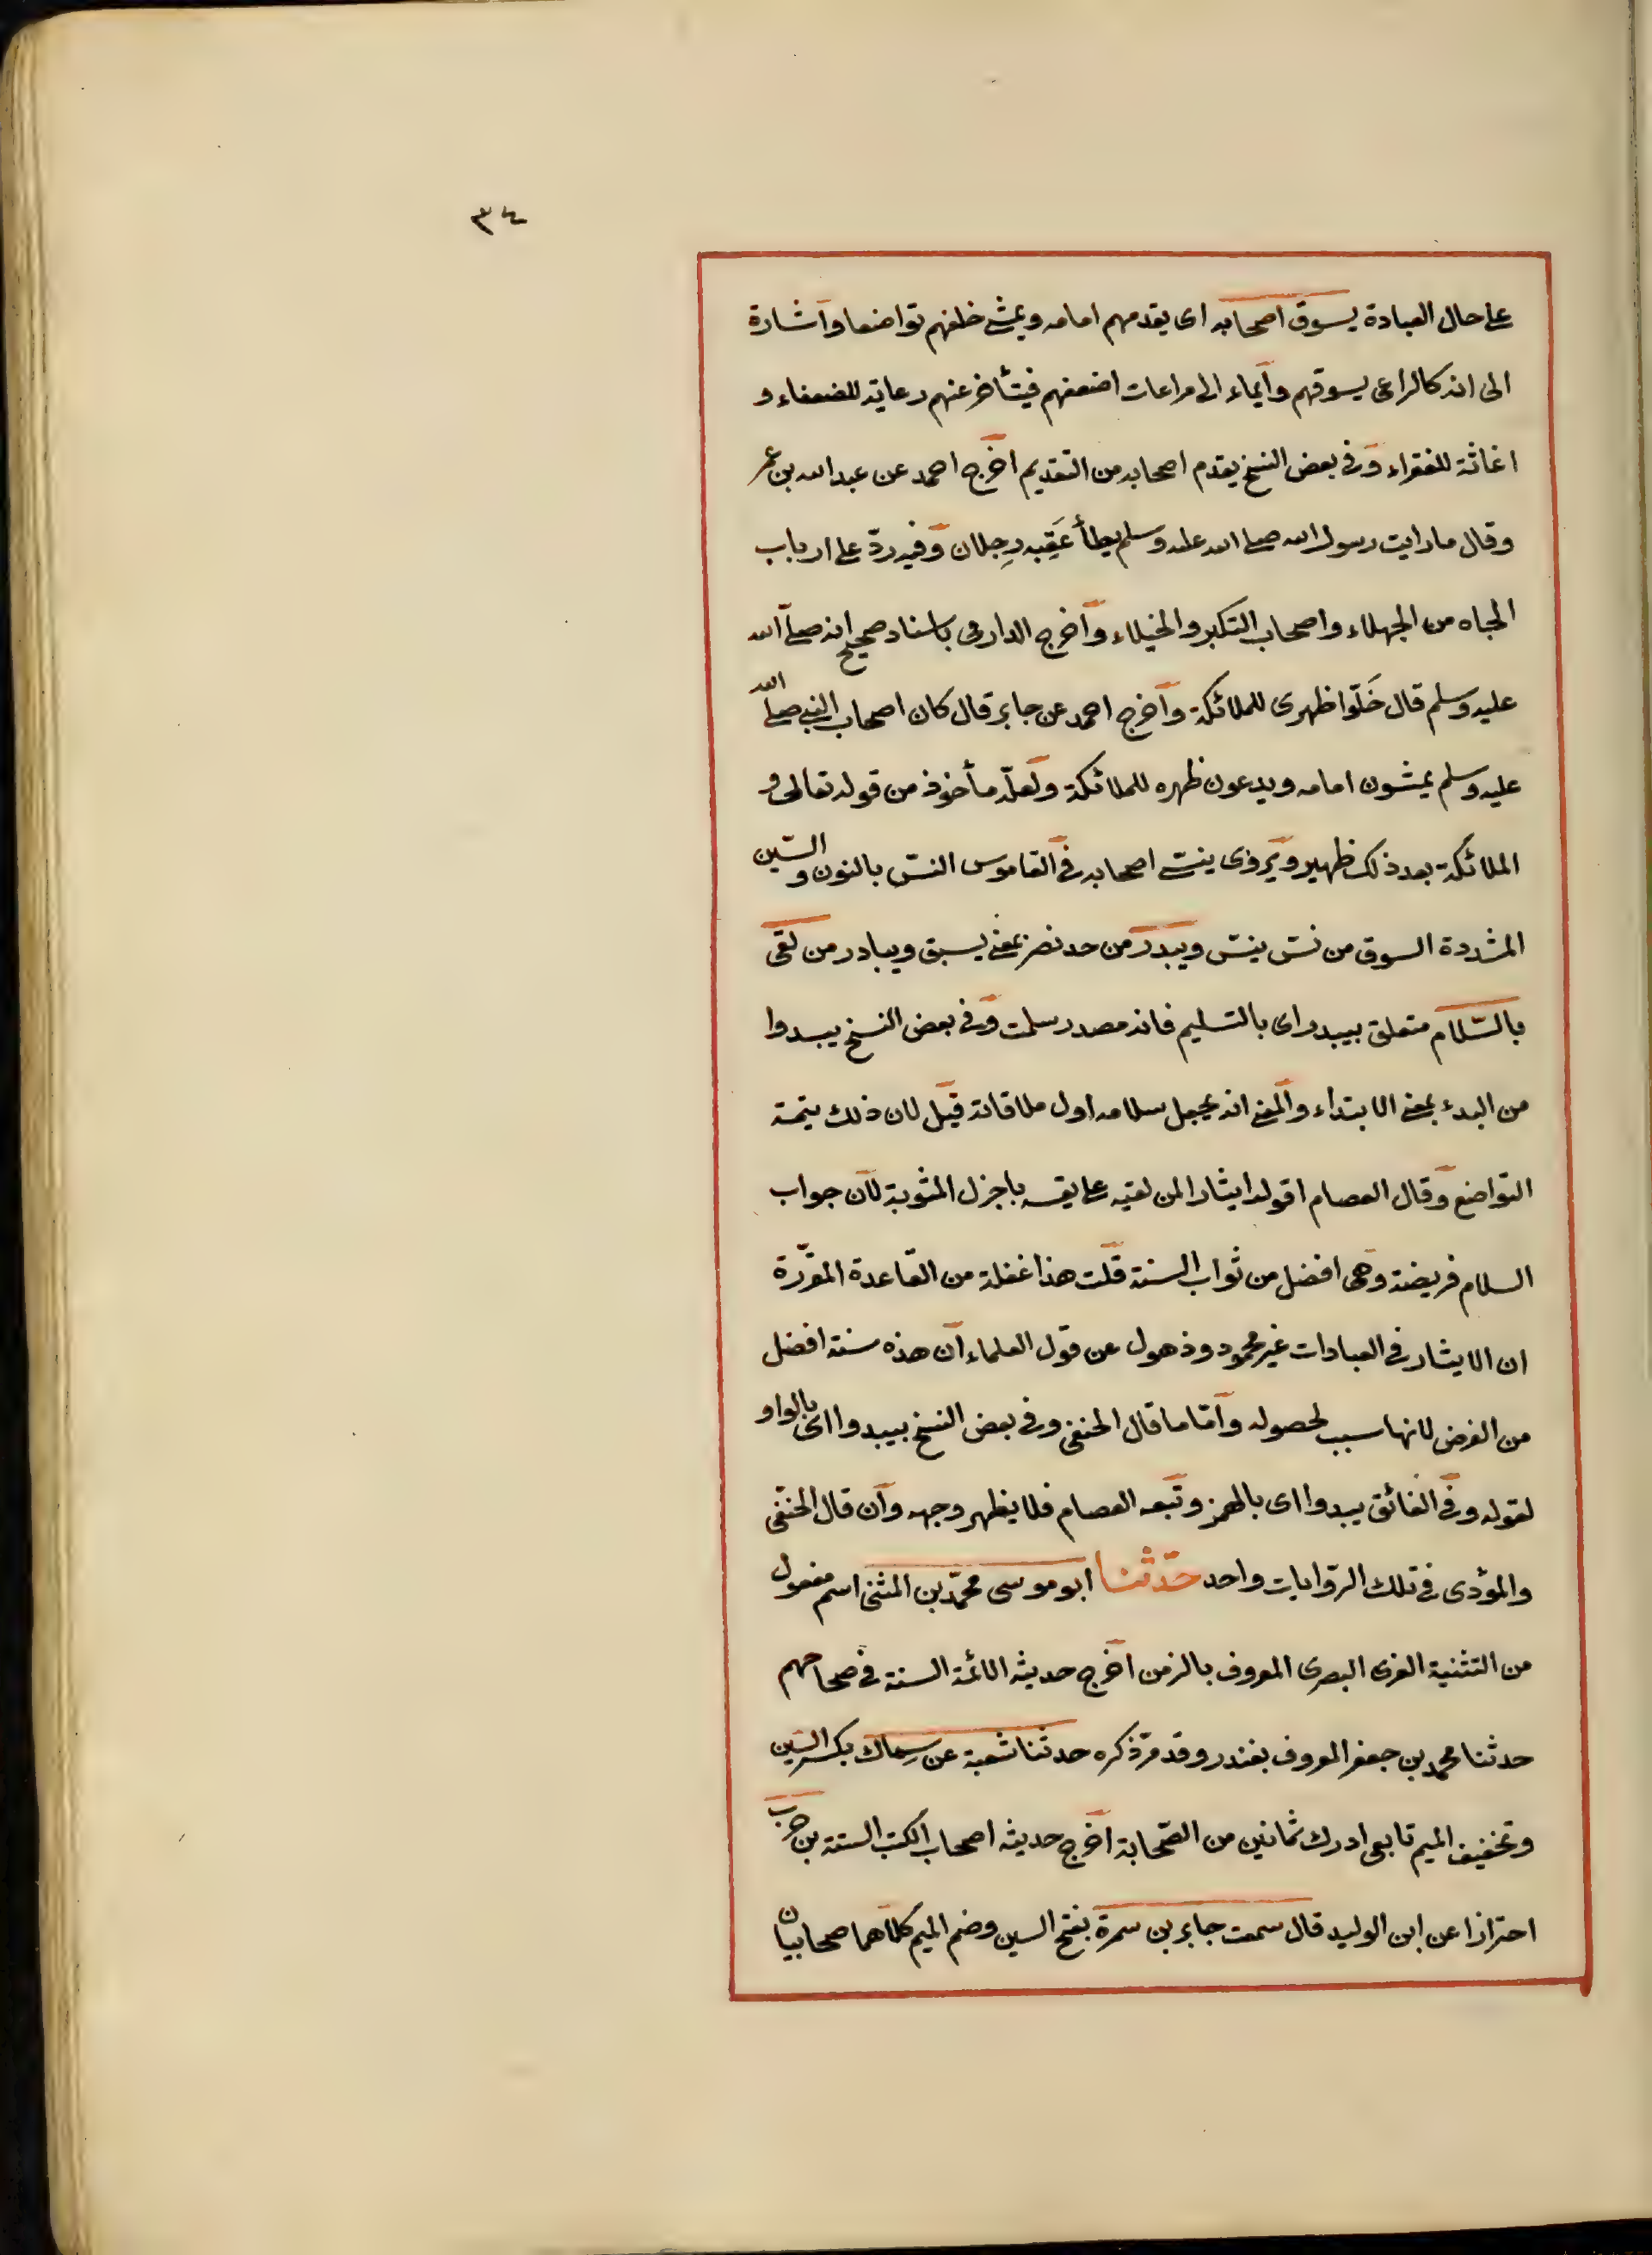 ٣٤
على حال العبادة يسوق اصحابه اى يقدمهم امامه ويمشى خلفهم تواضعا واشارة
الى انه كالراعى يسوقهم وايماء الى مراعات اضعفهم فيتأخر عنهم رعاية للضعفاء و
اغاثة للفقراء وفى بعض النسخ يقدم اصحابه من التقديم اخرج احمد عن عبد الله بن عمر
وقال ما رايت رسول الله صلى الله عليه وسلم يطأ عَقِبه رِجلان وفيه ردّ على ارباب
الجاه من الجهلاء واصحاب التكبر والخيلاء واخرج الدارمى باسناد صحيح انه صلى الله
عليه وسلم قال خَلّوا ظهرى للملائكة واخرج احمد عن جابر قال كان اصحاب النبى صلى الله
عليه وسلم يمشون امامه ويدعون ظهره للملائكة ولعلّه مأخوذ من قوله تعالى و
الملائكة بعد ذلك ظهير ويروى ينسّ اصحابه فى القاموس النسّ بالنون والسّين
المشددة السوق من نسّ ينسّ ويبدر من حد نصر بمعنى يسبق ويبادر من لقى
بالسّلام متعلق بيبدر اى بالتسليم فانه مصدر سلمت وفى بعض النسخ يبدوا
من البدء بمعنى الابتداء والمعنى انه يجعل سلامه اول ملاقاته قيل لان ذلك يتمة
التواضع وقال العصام اقول ايثارا لمن لقيه على نفسه باجزل المثوبة لان جواب
السلام فريضة وهى افضل من ثواب السنة قلت هذا غفلة من القاعدة المقرّرة
ان الايثار فى العبادات غير محمود وذهول عن قول العلماء ان هذه سنة افضل
من الفرض لانها سبب لحصوله وامّا ما قال الحنفى وفى بعض النسخ يبدوا اى بالواو
لقوله وفى الفائق يبدوا اى بالهمز وتبعه العصام فلا يظهر وجهه وان قال الحنفى
والمؤدى فى تلك الروايات واحد حدّثنا ابو موسى محمّد بن المثنى اسم مفعول
من التثنية العزى البصرى المعروف بالزمن اخرج حديثه الائمة الستة فى صحاحهم
حدثنا محمد بن جعفر المعروف بغندر وقد مرّ ذكره حدثنا شعبة عن سِماك بكسر السين
وتخفيف الميم تابعى ادرك ثمانين من الصّحابة اخرج حديثه اصحاب الكتب الستة بن حرب
احترازا عن ابن الوليد قال سمعت جابر بن سمرة بفتح السين وضم الميم كلاهما صحابيان